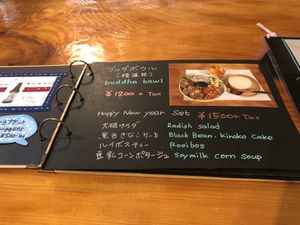 ブッダボウル
(精進丼)
buddha bowl
¥1200 + Tax
Happy New year Set ¥1500+Tax
大根サラダ Radish salad
黒豆きなこケーキ Black Bean. kinoko cake
ルイボスティー Rooibos
豆乳コーンポタージュ Soy milk corn soup